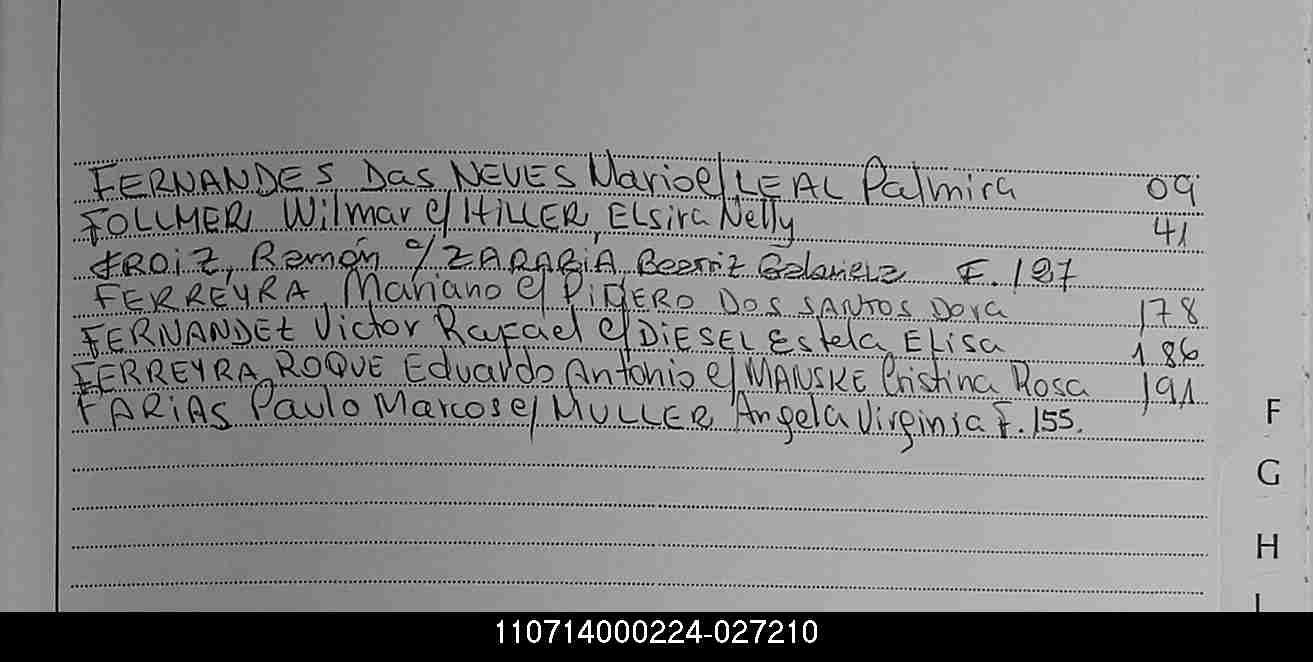 FERNANDES DAS NEVES Mario c/ LEAL Palmira 09
FOLLMER Wilmar c/ HILLER, ELsira Nelly 41
FROIZ, Ramón c/ ZARABIA Beatriz Gabriela F. 127
FERREYRA, Mariano c/ PIÑERO DOS SANTOS Dora 178
FERNANDEZ Victor Rafael c/ DIESEL Estela Elisa 186
FERREYRA ROQUE Eduardo Antonio c/ MANSKE Cristina Rosa 191
FARIAS Paulo Marcos c/ MULLER Angela Virginia F. 155.
F
G
H
I
110714000224-027210